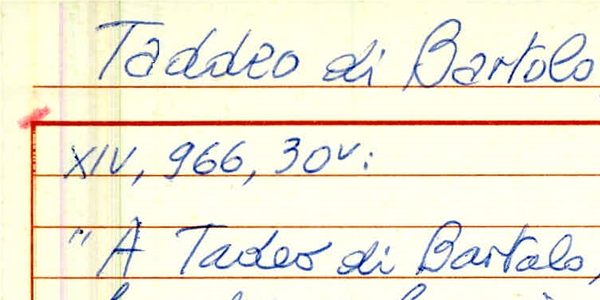 Taddeo di Bartolo
XIV, 966, 30v:
"A Tadeo di Bartalo,